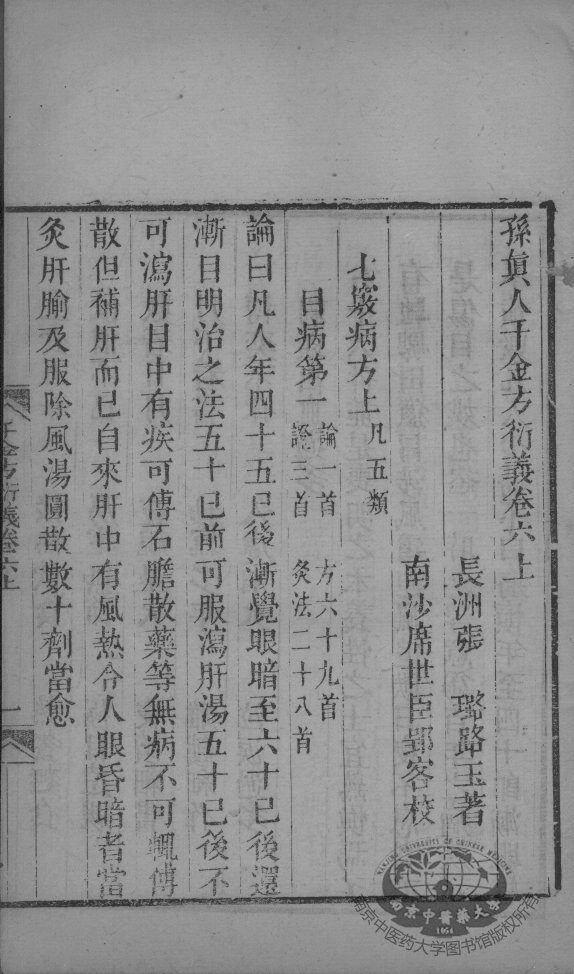 孫眞人千金方衍義卷六上
長洲張　璐路玉著
南沙席世臣郢客校
七竅病方上 凡五類
目病第一 論一首 方六十九首
證三首 灸法二十八首
論曰凡人年四十五已後漸覺眼暗至六十已後還
漸目明治之法五十已前可服瀉肝湯五十已後不
可瀉肝目中有疾可傅石膽散藥等無病不可輒傅
散但補肝而已自來肝中有風熱令人眼昏暗者當
灸肝腧及服除風湯圓散數十劑當愈
千金方衍義卷六上
一
NANJING UNIVERSITY OF CHINESE MEDICINE
南京中醫藥大學
1954
南京中医药大学图书馆版权所有